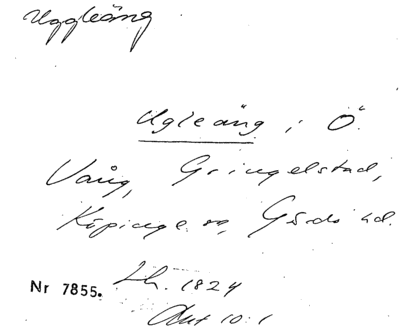 Uggleäng
Ugleäng i Ö.
Vång, Gringelstad,
Köpinge sn, Gärds hd.
Nr 7855. Lh. 1824
Akt 10:1